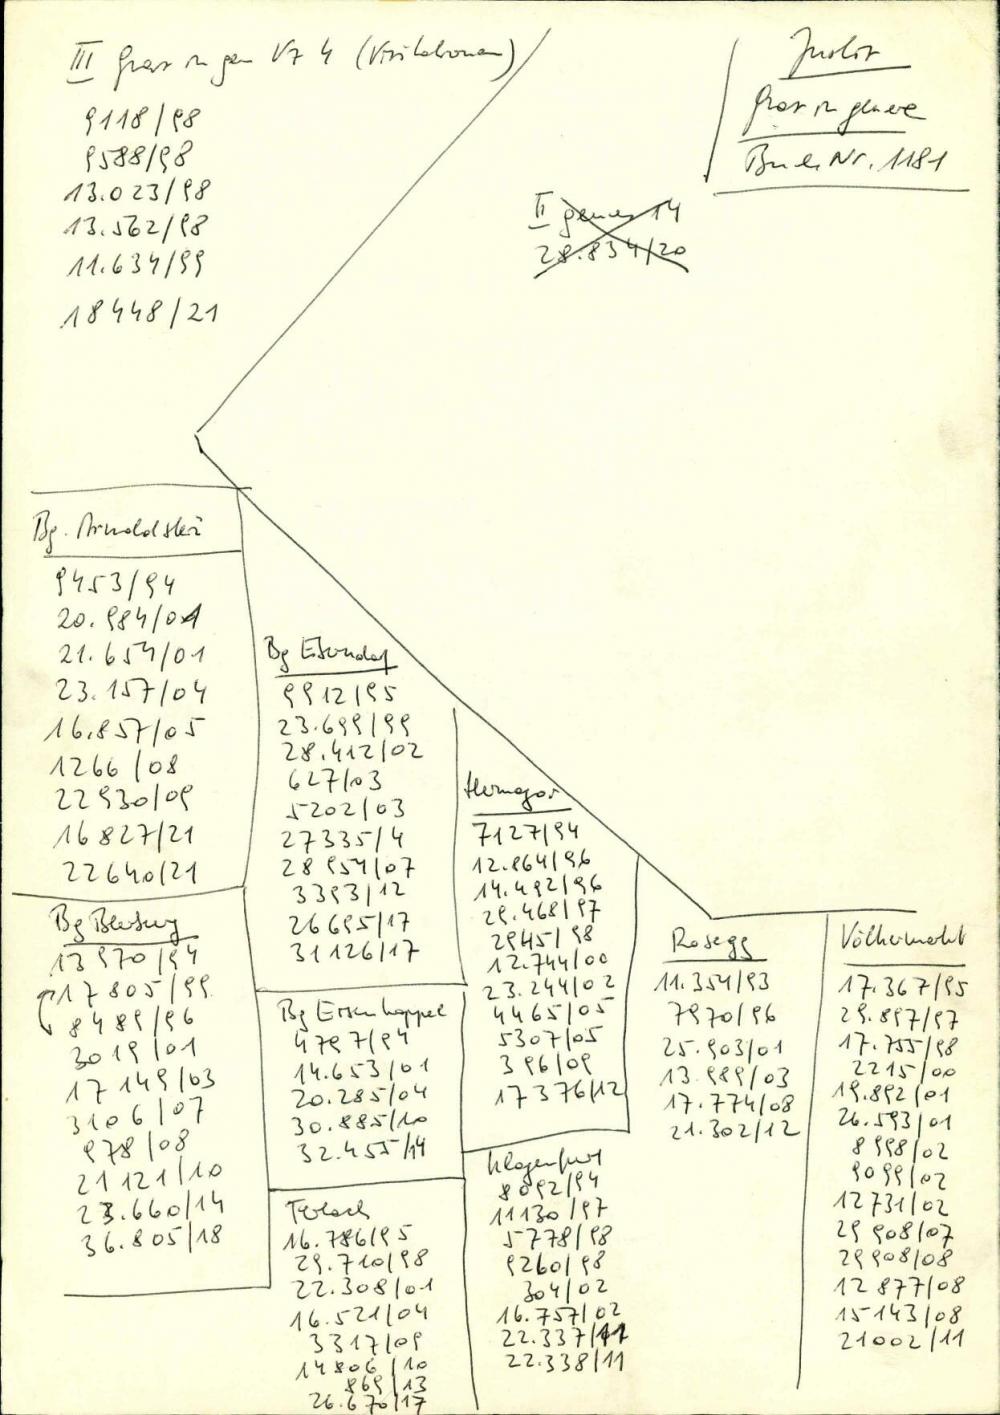 III Graz in gen VZ 4 (Visitationen)
9118/98
9588/98
13.023/98
13.562/98
11.634/99
18448/21
Justiz
Graz in genere
Buch Nr. 1181
II genere 14
28.834/20
Bg. Arnoldstein
9453/94
20.984/01
21.654/01
23.157/04
16.857/05
1266/08
22930/09
16827/21
22640/21
Bg Bleiburg
13970/94
17805/99
8489/96
3019/01
17149/03
3106/07
978/08
21121/10
23.660/14
36.805/18
Bg Eberndorf
9912/95
23.699/99
28.412/02
627/03
5202/03
27335/4
28954/07
3393/12
26695/17
31126/17
Bg Eisenkappel
4797/94
14.653/01
20.285/04
30.885/10
32.455/14
Ferlach
16.786/95
29.710/98
22.308/01
16.521/04
3317/09
14806/10
869/13
26.670/17
Hermagor
7127/94
12.864/96
14.492/96
29.468/97
2945/98
12.744/00
23.244/02
4465/05
5307/05
396/09
17376/12
Klagenfurt
8092/94
11130/97
5778/98
9260/98
304/02
16.757/02
22.337/11
22.338/11
Rosegg
11.354/93
7970/96
25.903/01
13.989/03
17.774/08
21.302/12
Völkermarkt
17.367/95
29.897/97
17.755/98
2215/00
19.892/01
26.593/01
8998/02
9099/02
12731/02
29908/07
29908/08
12877/08
15143/08
21002/11